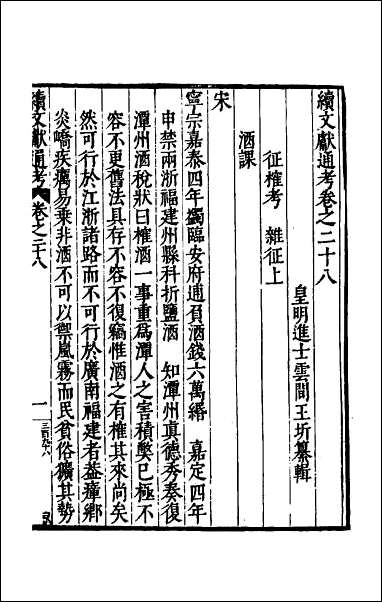 續文獻通考卷之二十八
皇明進士雲間王圻纂輯
征榷考 雜征上
酒課
宋
寧宗嘉泰四年蠲臨安府逋負酒錢六萬緡 嘉定四年
申禁兩浙福建州縣科折鹽酒 知潭州真德秀奏復
潭州酒稅狀曰榷酒一事重為潭人之害積獘已極不
容不更舊法具存不容不復竊惟酒之有榷其來尚矣
然可行於江浙諸路而不可行於廣南福建者葢瘴鄉
炎嶠疾癘易乗非酒不可以禦風霧而民貧俗獷其勢
續文獻通考 卷之二十八
一